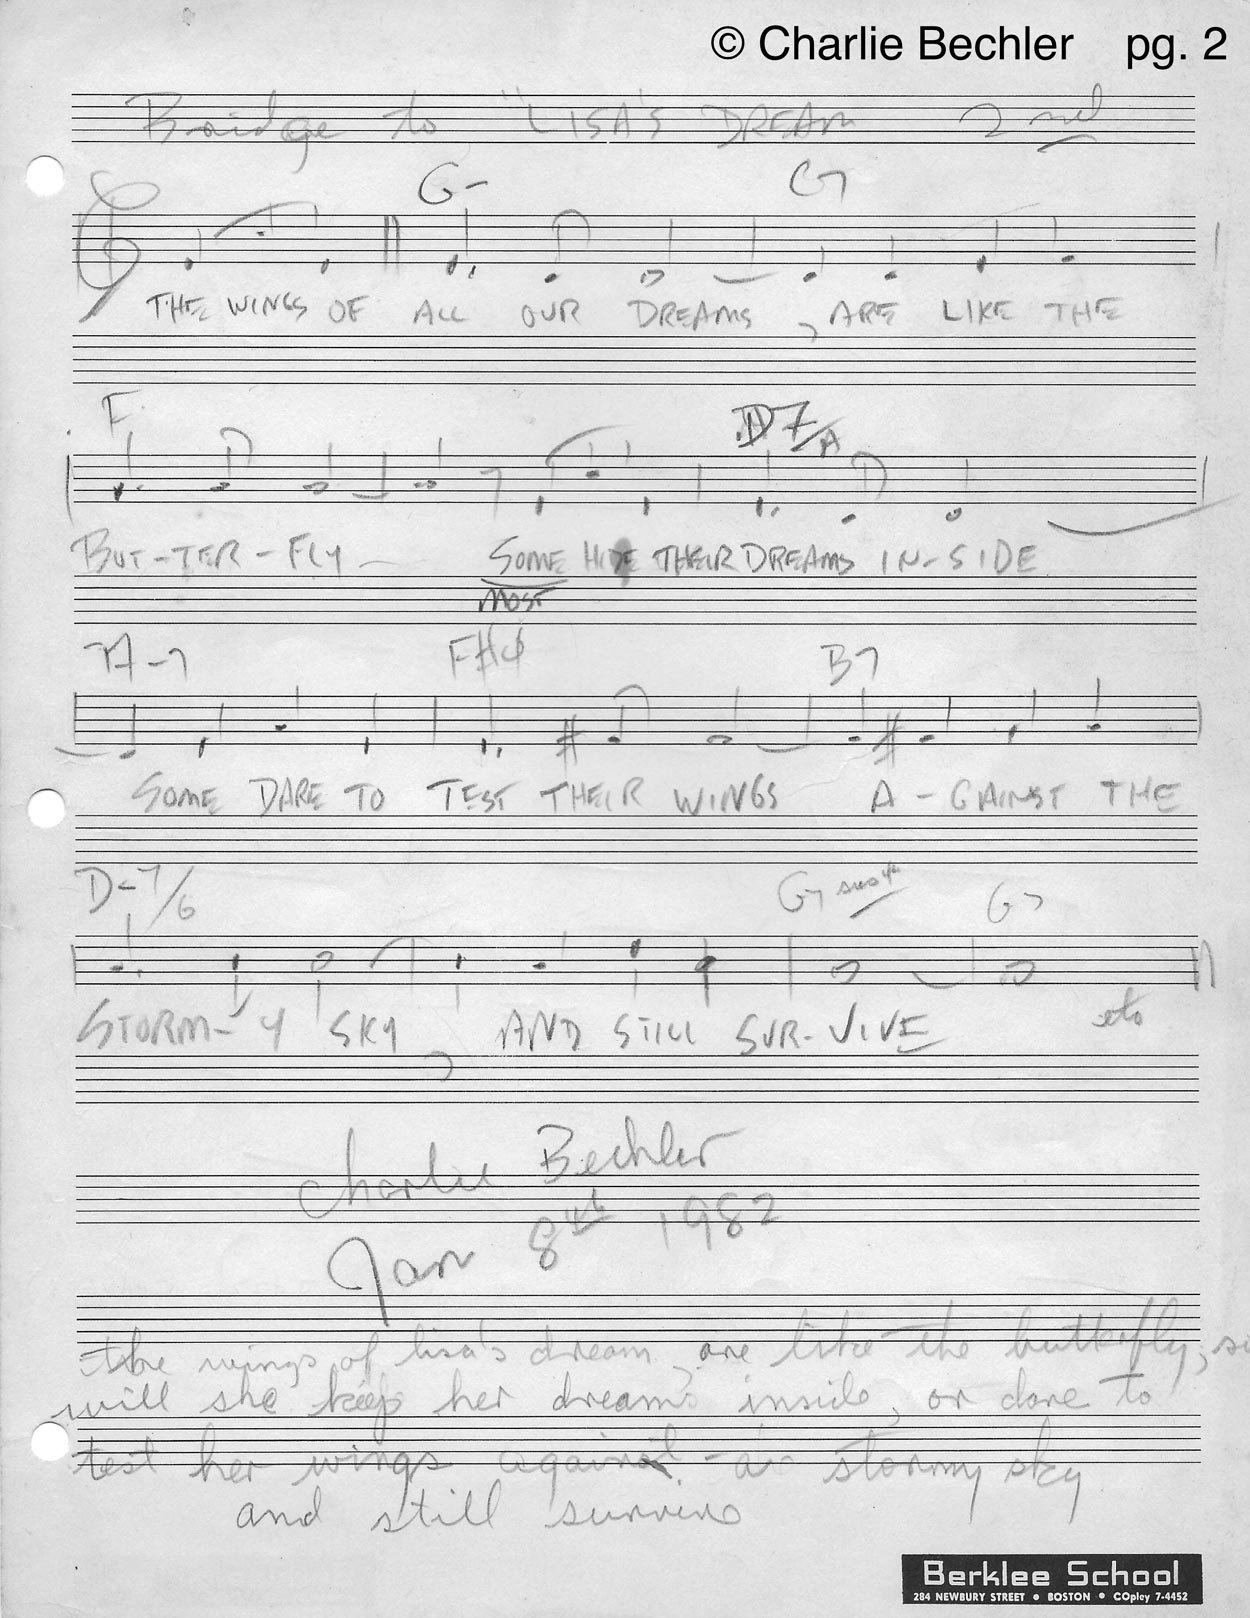 © Charlie Bechler pg. 2
Bridge to "LISA'S DREAM 2nd
G- C7
THE WINGS OF ALL OUR DREAMS, ARE LIKE THE
F D7/A
BUT-TER-FLY- SOME HIDE THEIR DREAMS IN-SIDE
MOST
A-7 F#ø B7
SOME DARE TO TEST THEIR WINGS A-GAINST THE
D-7/G G7 sus4 G7
STORM-Y SKY, AND STILL SUR-VIVE etc
Charlie Bechler
Jan 8th 1982
the wings of lisa's dream, are like the butterfly, so
will she keep her dreams inside, or dare to
test her wings against a stormy sky
and still survive
Berklee School
284 NEWBURY STREET • BOSTON • COpley 7-4452